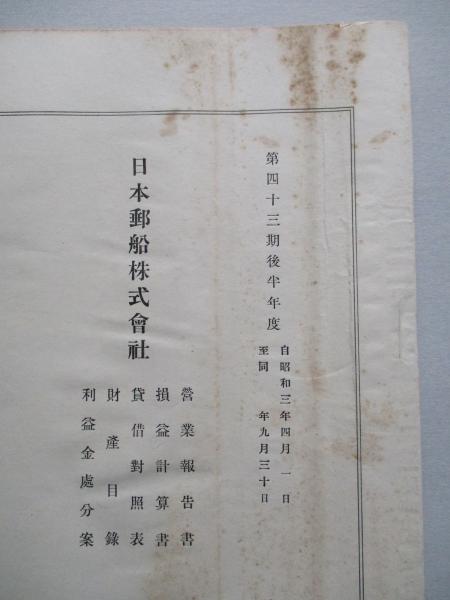 第四十三期後半年度
自昭和三年四月一日
至同年九月三十日
日本郵船株式會社
營業報告書
損益計算書
貸借對照表
財產目錄
利益金處分案